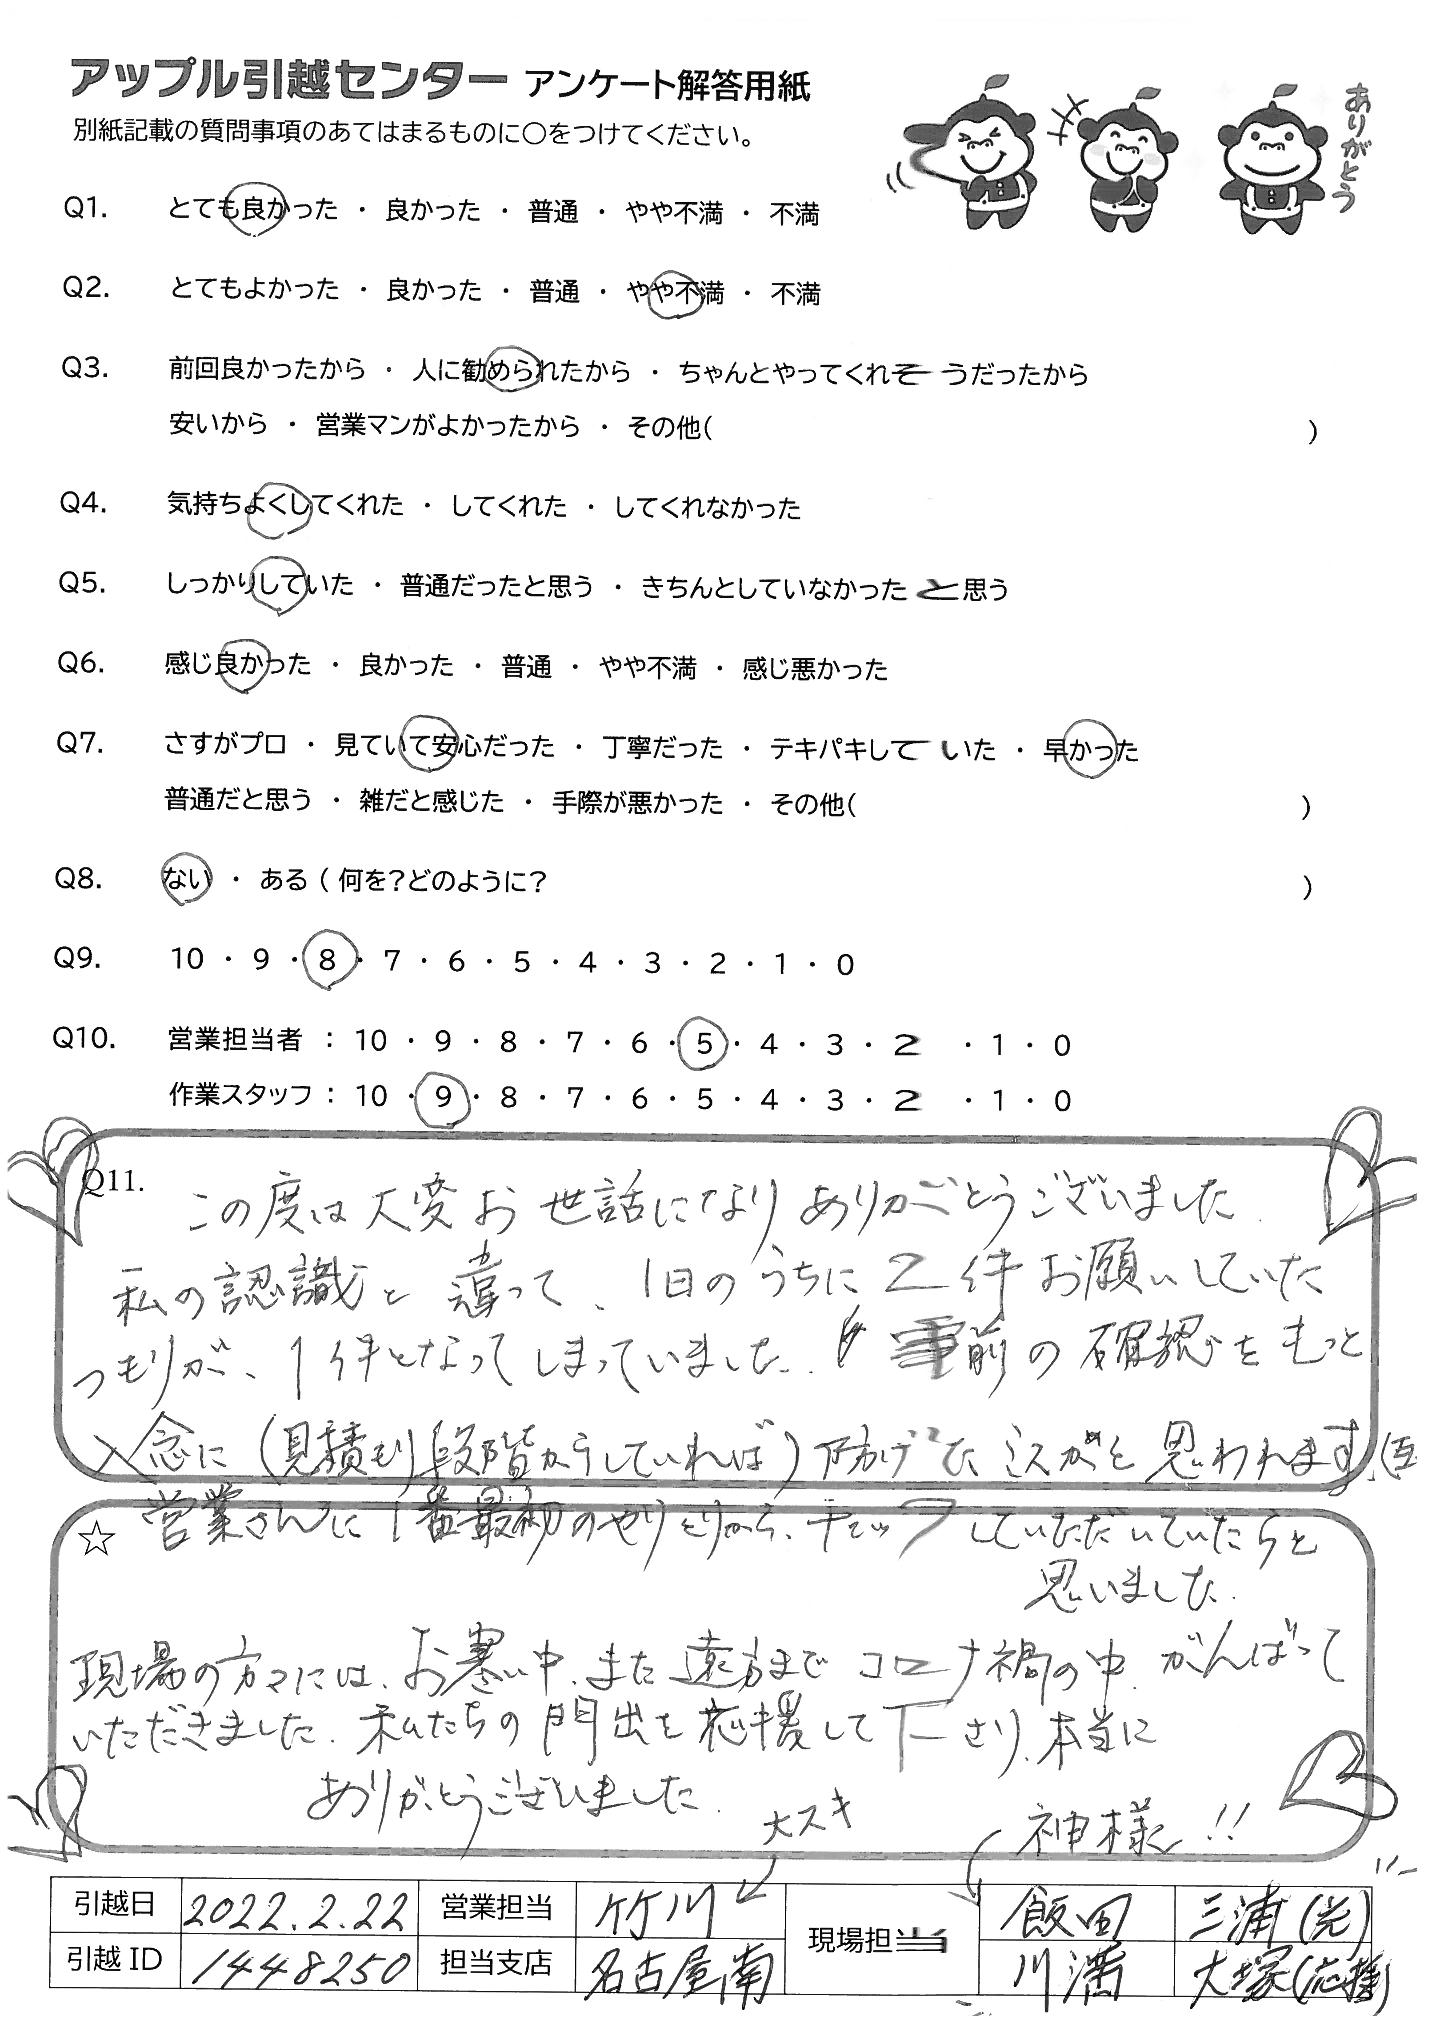 アップル引越センター アンケート解答用紙
ありがとう
別紙記載の質問事項のあてはまるものに〇をつけてください。
Q1. とても良かった ・ 良かった ・ 普通 ・ やや不満 ・ 不満
Q2. とてもよかった ・ 良かった ・ 普通 ・ やや不満 ・ 不満
Q3. 前回良かったから ・ 人に勧められたから ・ ちゃんとやってくれそうだったから
安いから ・ 営業マンがよかったから ・ その他( )
Q4. 気持ちよくしてくれた ・ してくれた ・ してくれなかった
Q5. しっかりしていた ・ 普通だったと思う ・ きちんとしていなかったと思う
Q6. 感じ良かった ・ 良かった ・ 普通 ・ やや不満 ・ 感じ悪かった
Q7. さすがプロ ・ 見ていて安心だった ・ 丁寧だった ・ テキパキしていた ・ 早かった
普通だと思う ・ 雑だと感じた ・ 手際が悪かった ・ その他( )
Q8. ない ・ ある ( 何を?どのように? )
Q9. 10 ・ 9 ・ 8 ・ 7 ・ 6 ・ 5 ・ 4 ・ 3 ・ 2 ・ 1 ・ 0
Q10. 営業担当者 : 10 ・ 9 ・ 8 ・ 7 ・ 6 ・ 5 ・ 4 ・ 3 ・ 2 ・ 1 ・ 0
作業スタッフ : 10 ・ 9 ・ 8 ・ 7 ・ 6 ・ 5 ・ 4 ・ 3 ・ 2 ・ 1 ・ 0
Q11. この度は大変お世話になりありがとうございました.
私の認識と違って、1日のうちに2件お願いしていた
つもりが、1件となってしまっていました. 事前の確認をもっと
入念に(見積もり段階からしていれば)防げたミスかと思われます.
☆ 営業さんに1番最初のやりとりから、チェックしていただいていたらと
思いました.
現場の方々には、お寒い中、また遠方までコロナ禍の中、がんばって
いただきました. 私たちの門出を応援して下さり、本当に
ありがとうございました.
大スキ
神様!!
引越日 2022.2.22 営業担当 竹川 現場担当 飯田 三浦(光)
引越ID 1448250 担当支店 名古屋南 川満 大塚(応援)